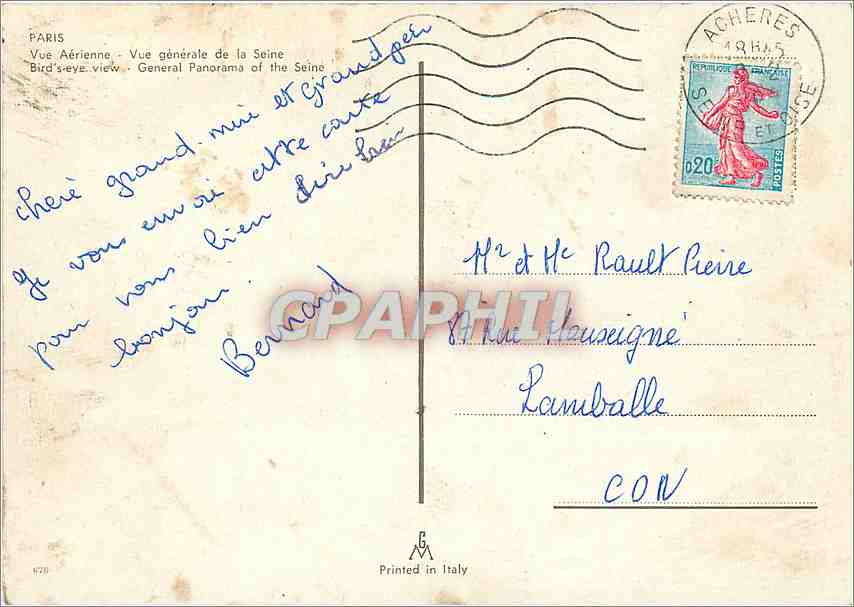 PARIS
Vue Aérienne - Vue générale de la Seine
Bird's-eye view - General Panorama of the Seine
cherè grand mere et Grand père
Je vous envoie cette carte
pour vous bien dire bien
bonjour
Bernard
Mr et Me Rault Pierre
87 Rue Mauseigné
Lamballe
CDN
ACHERES
SEINE ET OISE
REPUBLIQUE FRANÇAISE
0,20
POSTES
CPAPHIL
GM
Printed in Italy